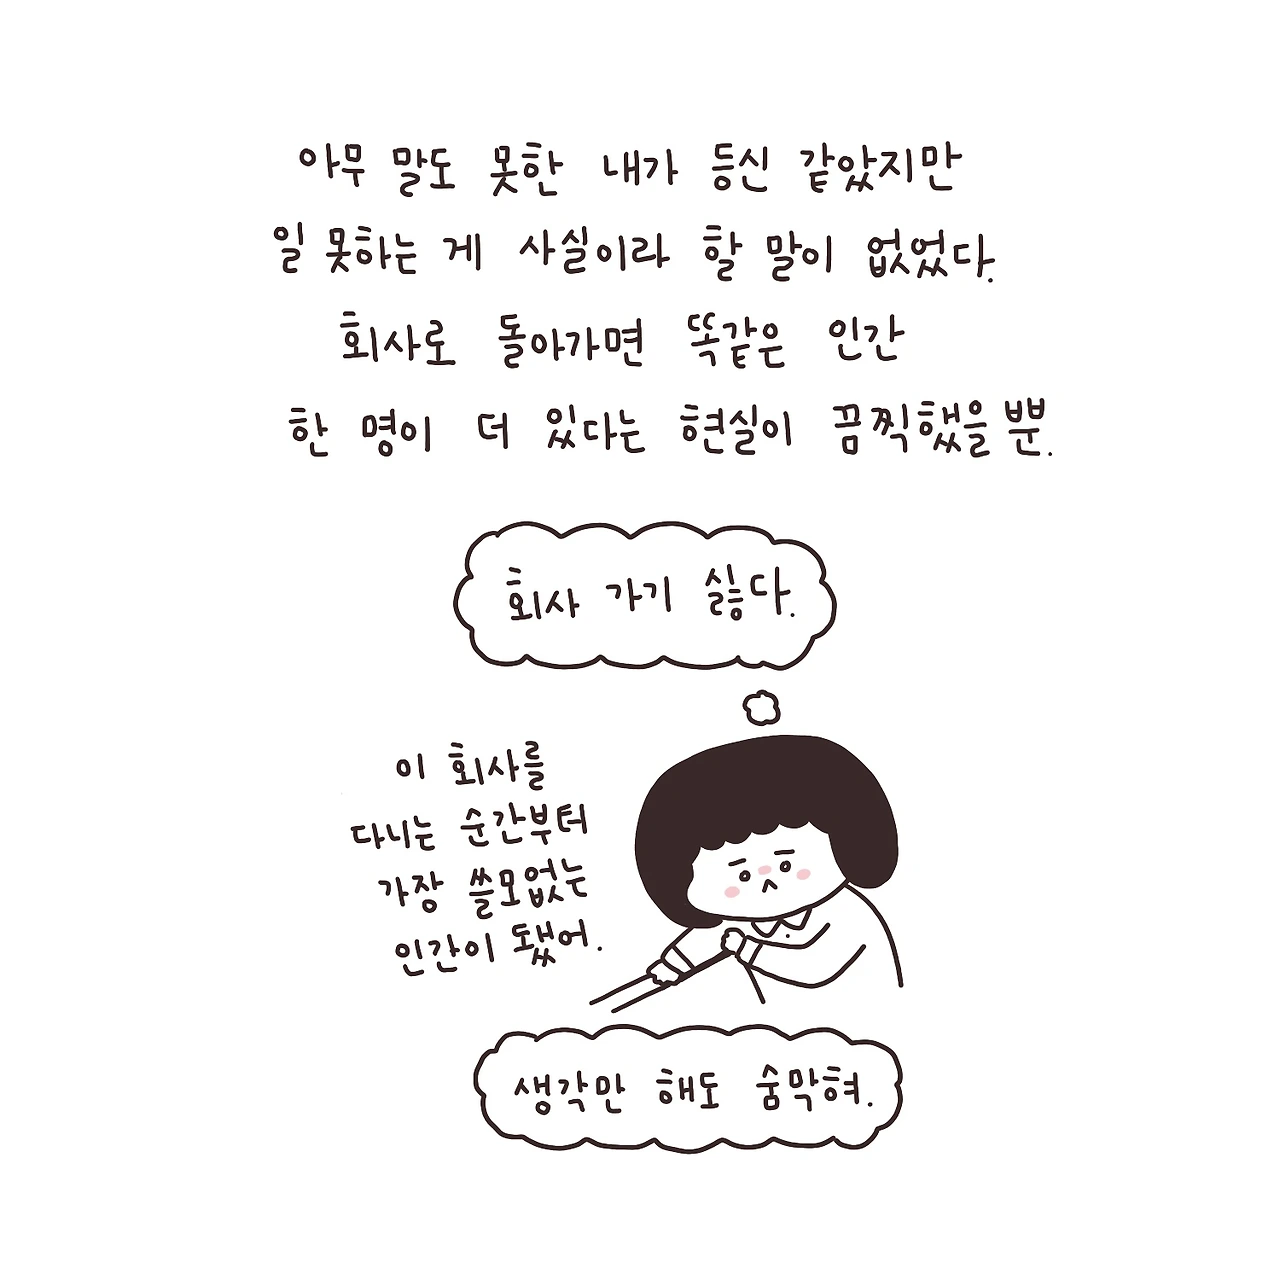 아무 말도 못한 내가 등신 같았지만
일 못하는 게 사실이라 할 말이 없었다.
회사로 돌아가면 똑같은 인간
한 명이 더 있다는 현실이 끔찍했을 뿐.
회사 가기 싫다.
이 회사를
다니는 순간부터
가장 쓸모없는
인간이 됐어.
생각만 해도 숨막혀.